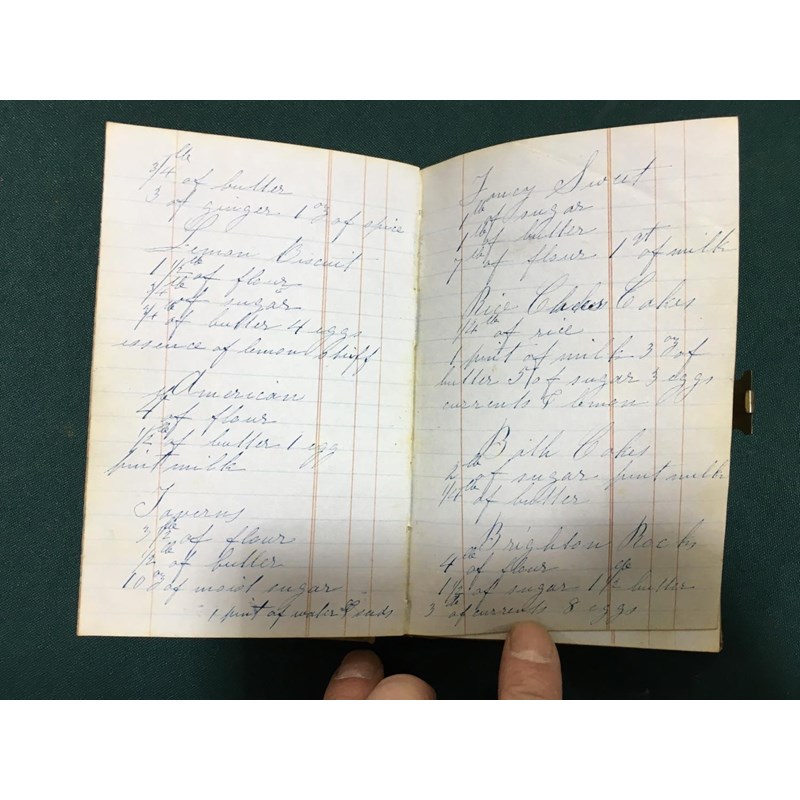 3/4 lb of butter
3 of ginger 1 oz of spice
Lemon Biscuit
1 1/2 lb of flour
3/4 lb of sugar
1/4 lb of butter 4 eggs
essence of lemon stiff
American
4 of flour
1/2 lb of butter 1 egg
pint milk
Taverns
3 1/2 lb of flour
1/2 lb of butter
10 oz of moist sugar
1 pint of water & seads
Fancy Sweet
1 lb of sugar
1 lb of butter
7 lb of flour 1 qt of milk
Rice Cakes
1/4 lb of rice
1 pint of milk 3 oz of
butter 5 of sugar 3 eggs
currents & lemon
Bath Cakes
2 lb of sugar pint milk
1/4 lb of butter
Brighton Rocks
4 lb of flour
1 1/2 of sugar 1 1/2 lb butter
3 lb of currents 8 eggs